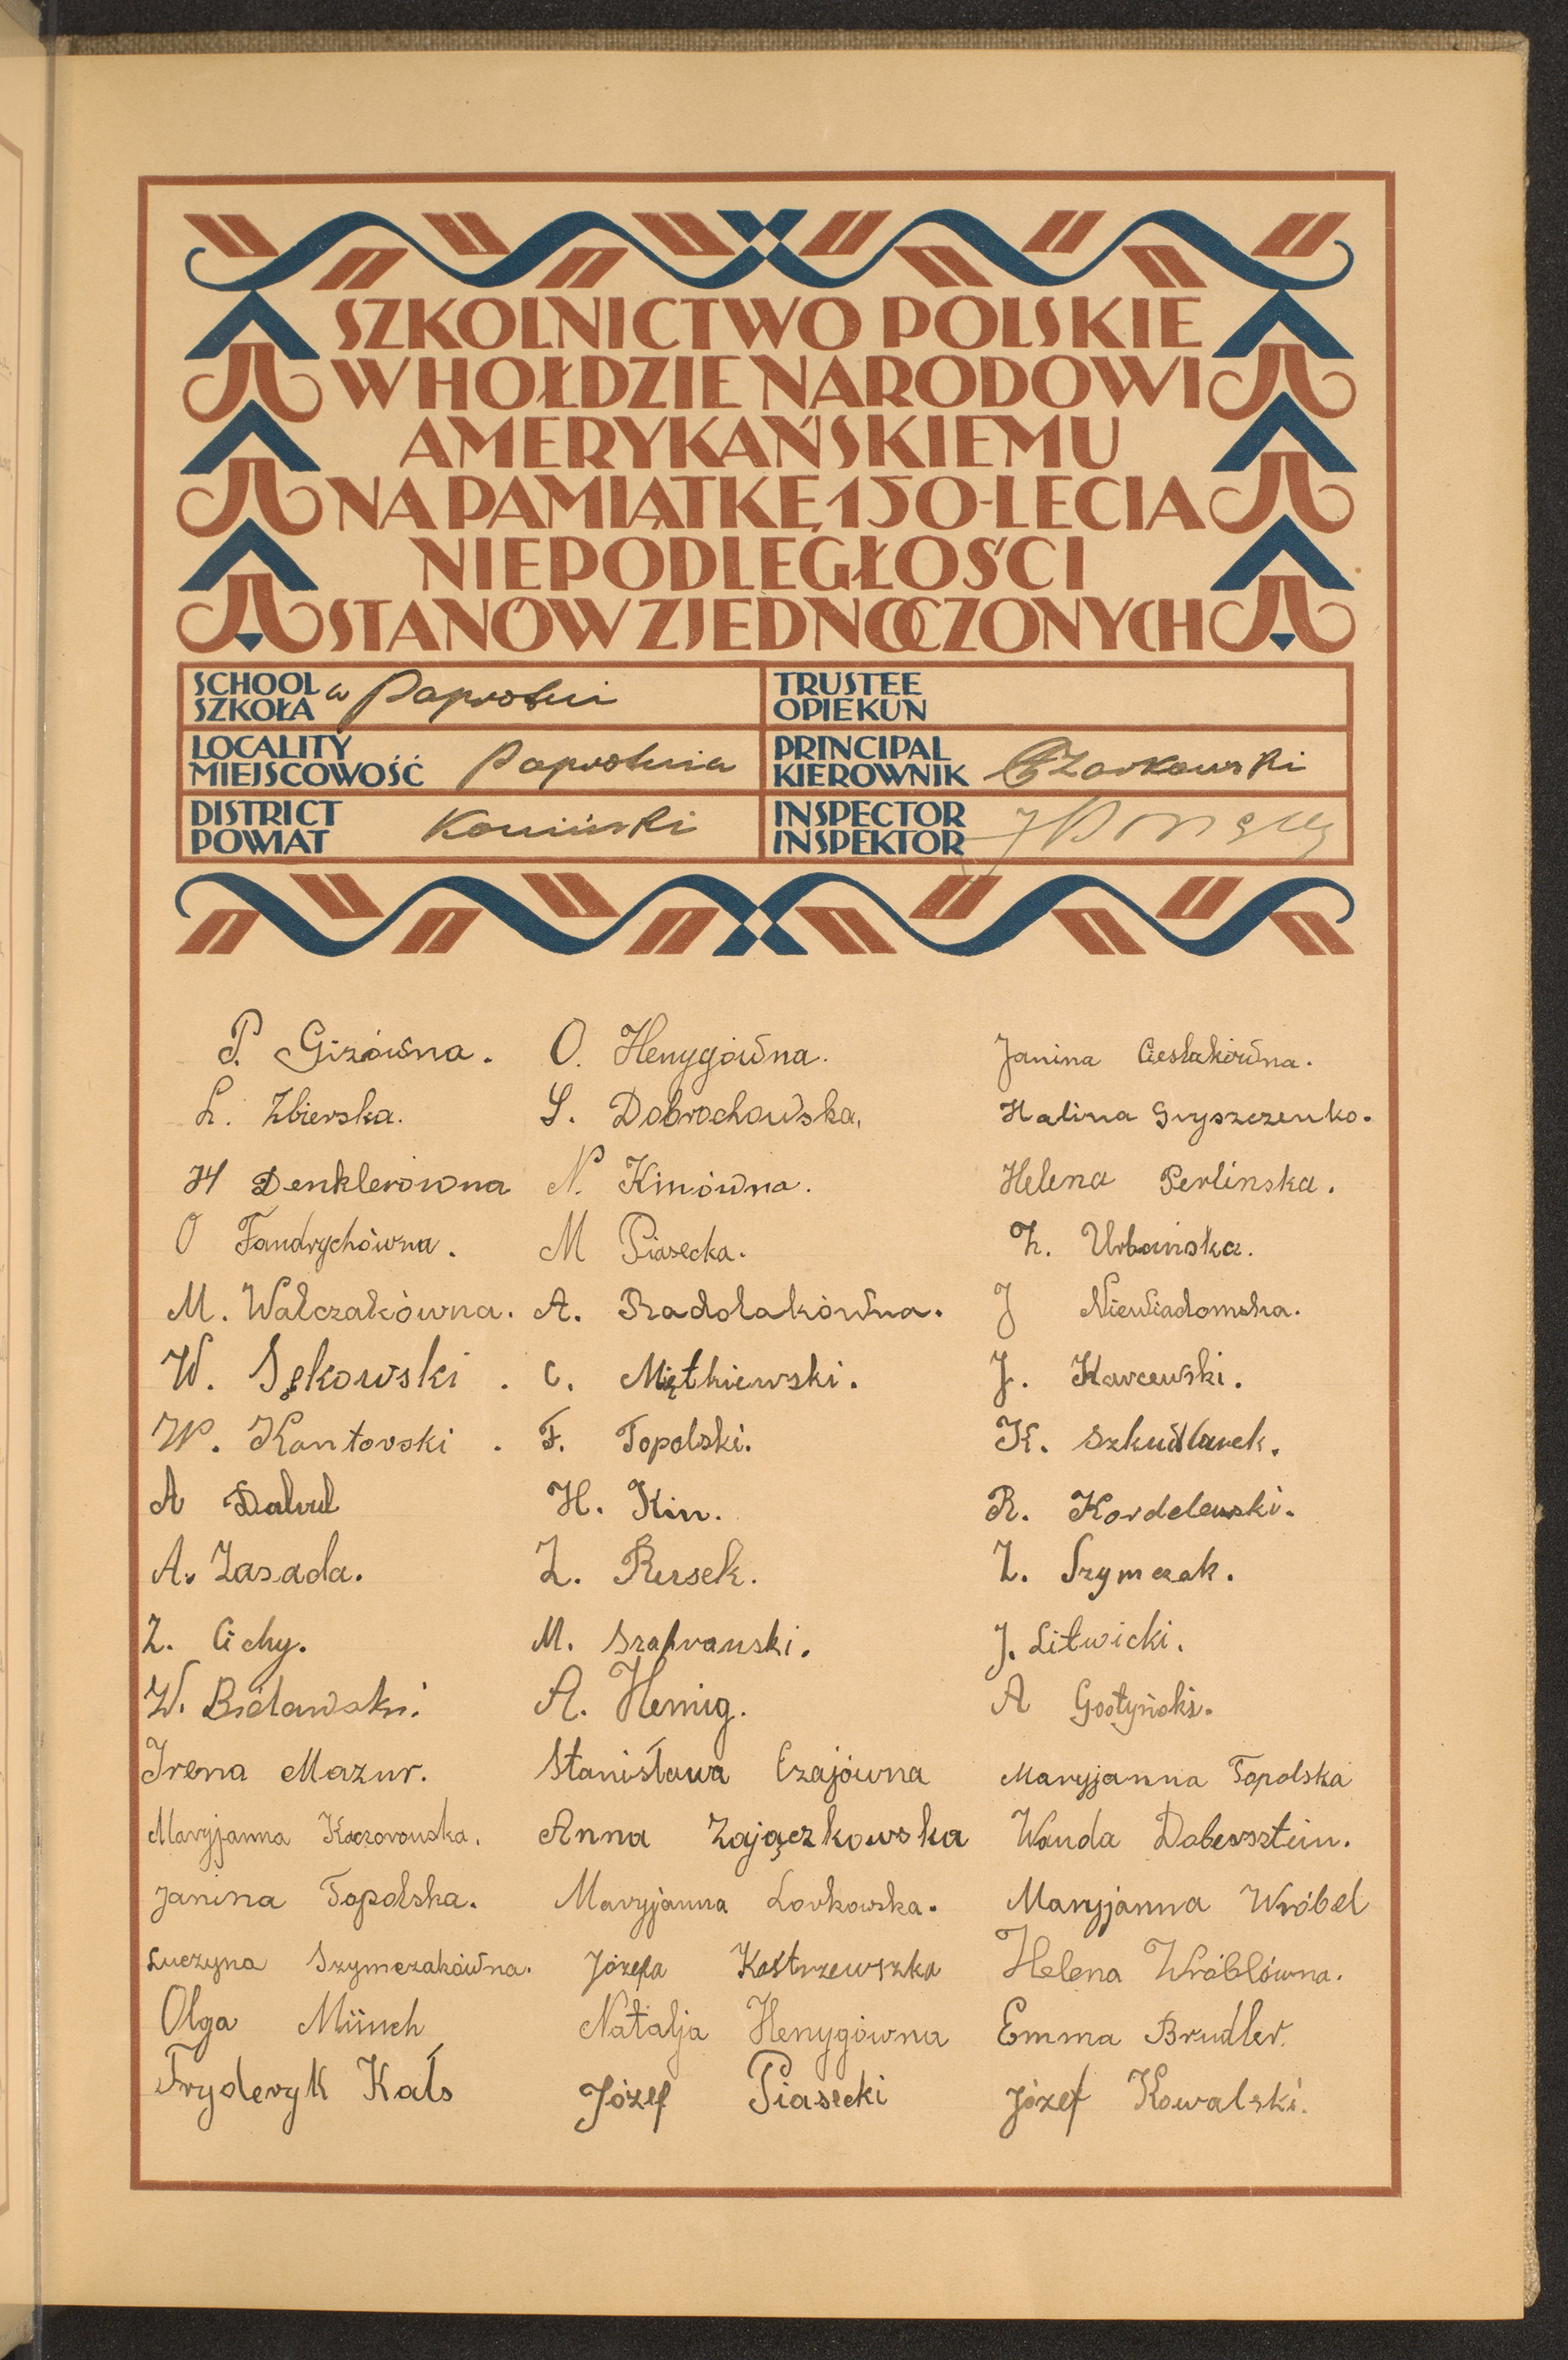 SZKOLNICTWO POLSKIE
W HOŁDZIE NARODOWI
AMERYKAŃSKIEMU
NA PAMIĄTKĘ 150-LECIA
NIEPODLEGŁOŚCI
STANÓW ZJEDNOCZONYCH
SCHOOL
SZKOŁA
w Paprotni
TRUSTEE
OPIEKUN
LOCALITY
MIEJSCOWOŚĆ
Paprotnia
PRINCIPAL
KIEROWNIK
Czarkowski
DISTRICT
POWIAT
Koniński
INSPECTOR
INSPEKTOR
P. Gizówna. O. Henygówna. Janina Cieslakówna.
L. Zbierska. S. Dobrochowska, Halina Gryszczenko.
H Denklerówna N. Kinówna. Helena Perlinska.
O Fandrychówna. M Piasecka. Z. Urbańska.
M. Walczakówna. A. Radolakówna. J Niewiadomska.
W. Sękowski. C. Miętkiewski. J. Karcewski.
W. Kantorski. F. Topolski. K. Szkudlarek.
A H. Kin. R. Kordelewski.
A. Zasada. Z. Rusek. Z. Szymczak.
Z. Cichy. M. Szafranski. J. Litwicki.
W. Bielawski. A. Henig. A Gostyński.
Irena Mazur. Stanisława Czajówna Maryjanna Topolska
Maryjanna Kaczorowska. Anna Zajączkowska Wanda Dobersztein.
Janina Topolska. Maryjanna Lorkowska. Maryjanna Wróbel
Luczyna Szymczakówna. Józefa Kostrzewszka Helena Wróblówna.
Olga Münch Natalja Henygówna Emma Brudler.
Fryderyk Kałs Józef Piasecki Józef Kowalski.